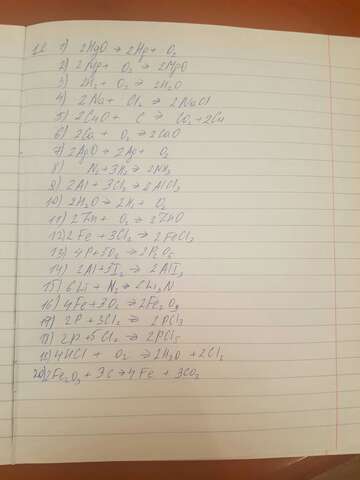 1) 2HgO → 2Hg + O₂
2) 2Mg + O₂ → 2MgO
3) 2H₂ + O₂ → 2H₂O
4) 2Na + Cl₂ → 2NaCl
5) 2CuO + C → CO₂ + 2Cu
6) 2Ca + O₂ → 2CaO
7) 2AgO → 2Ag + O₂
8) N₂ + 3H₂ → 2NH₃
9) 2Al + 3Cl₂ → 2AlCl₃
10) 2H₂O → 2H₂ + O₂
11) 2Zn + O₂ → 2ZnO
12) 2Fe + 3Cl₂ → 2FeCl₃
13) 4P + 5O₂ → 2P₂O₅
14) 2Al + 3I₂ → 2AlI₃
15) 6Li + N₂ → 2Li₃N
16) 4Fe + 3O₂ → 2Fe₂O₃
17) 2P + 3Cl₂ → 2PCl₃
18) 2P + 5Cl₂ → 2PCl₅
19) 4HCl + O₂ → 2H₂O + 2Cl₂
20) 2Fe₂O₃ + 3C → 4Fe + 3CO₂